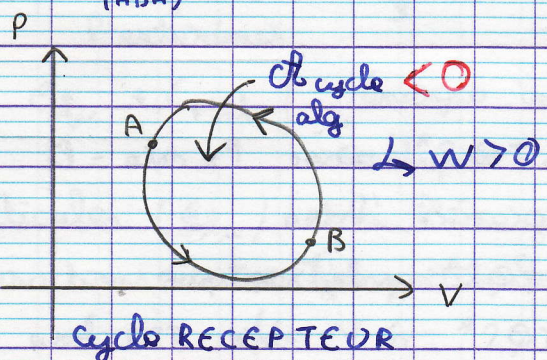 (ABA)
P
A cycle < 0
alg
A
↳ W > 0
B
V
cycle RECEPTEUR